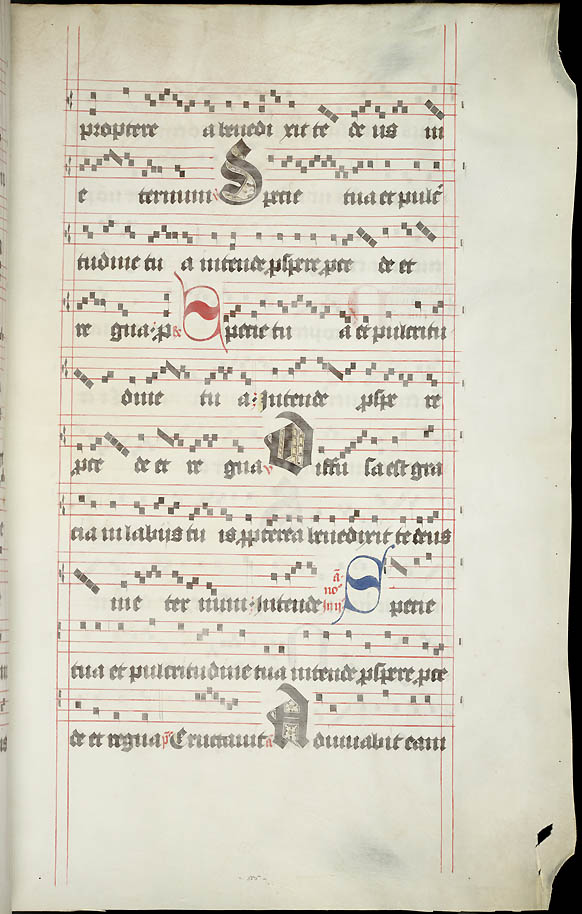 proptere a benedi xit te de us in
e ternum v Specie tua et pulcri
tudine tu a intende pspere pce de et
re gna : p R Specie tu a et pulcritu
dine tu a : Intende pspe re
pce de et re gna v Diffu sa est gra
cia in labijs tu is ppterea benedixit te deus
ine ter num : Intende in ij no a Specie
tua et pulcritudine tua intende pspere pce
de et regna ps Eructauit a Adiuuabit eam